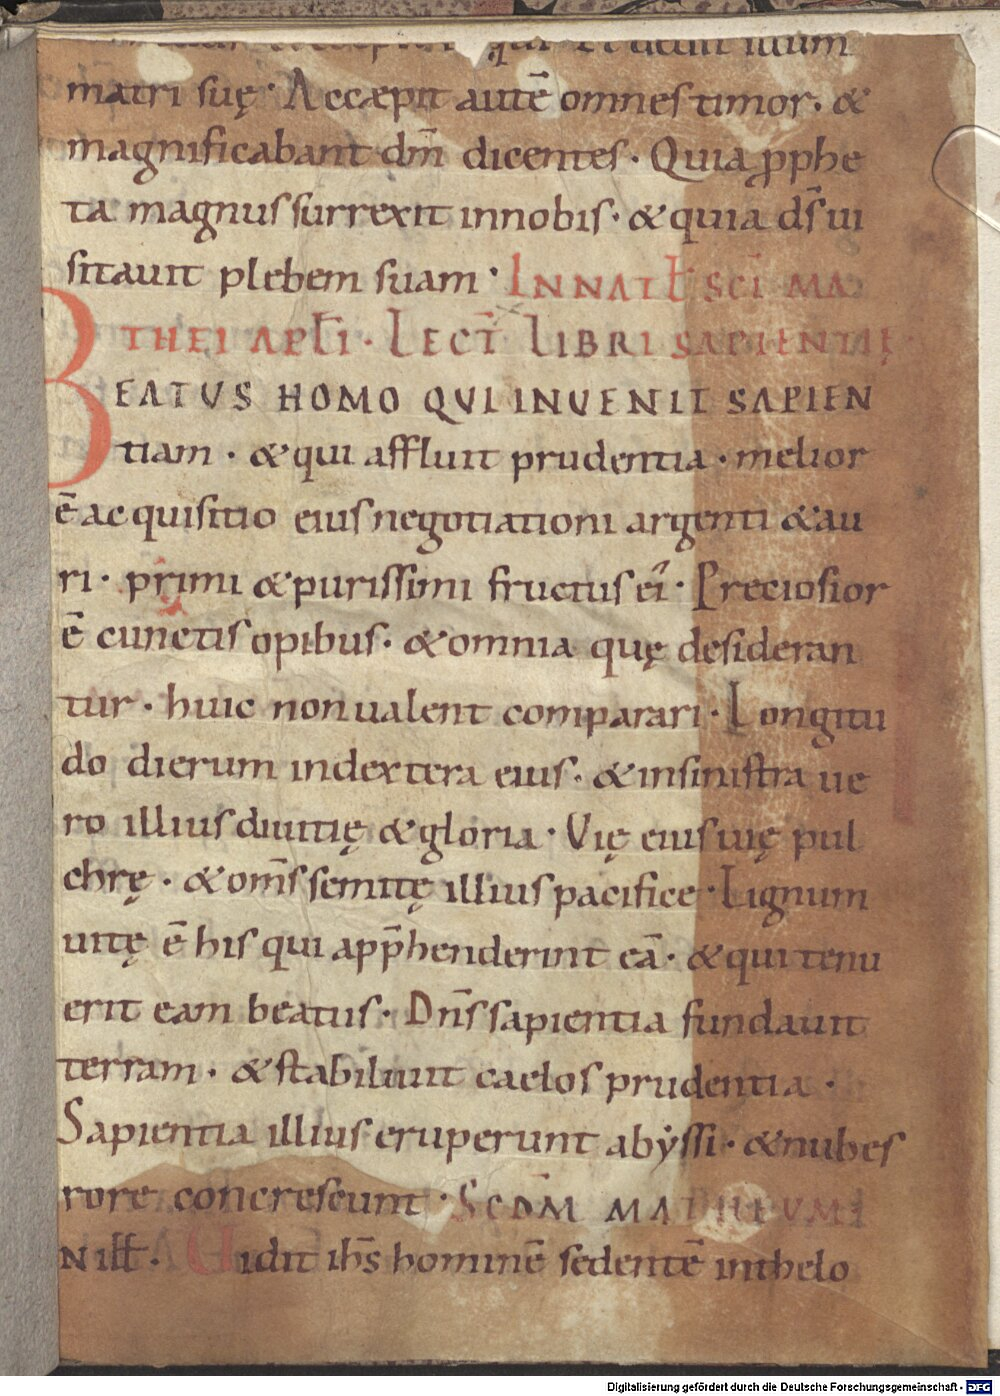 qui et dedit illum
matri suę· Accæpit autē omnes timor· &
magnificabant dm̄ dicentes· Quia ꝓphe
ta magnus surrexit innobis· & quia ds̄ ui
sitauit plebem suam· IN NATƗ SCI MA
THEI APLI· LECT̄ LIBRI SAPIENTIĘ
BEATUS HOMO QUI INUENIT SAPIEN
tiam· & qui affluit prudentia· melior
ē acquisitio eius negotiationi argenti & au
ri· primi & purissimi fructus ei᾿· Preciosior
ē cunctis opibus· & omnia quę desideran
tur· huic non ualent comparari· Longitu
do dierum indextera eius· & insinistra ue
ro illius diuitię & gloria· Vię eius uię pul
chrę· & om̄s semitę illius pacifice· Lignum
uitę ē his qui app̄henderint eā· & qui tenu
erit eam beatus· Dn̄s sapientia fundauit
terram· & stabiliuit caelos prudentia·
Sapientia illius eruperunt abẏssi· & nubes
rore concrescunt· SCDM MATHEUM
N ill̄· Uidit ih̄s hominē sedentē inthelo
Digitalisierung gefördert durch die Deutsche Forschungsgemeinschaft - DFG